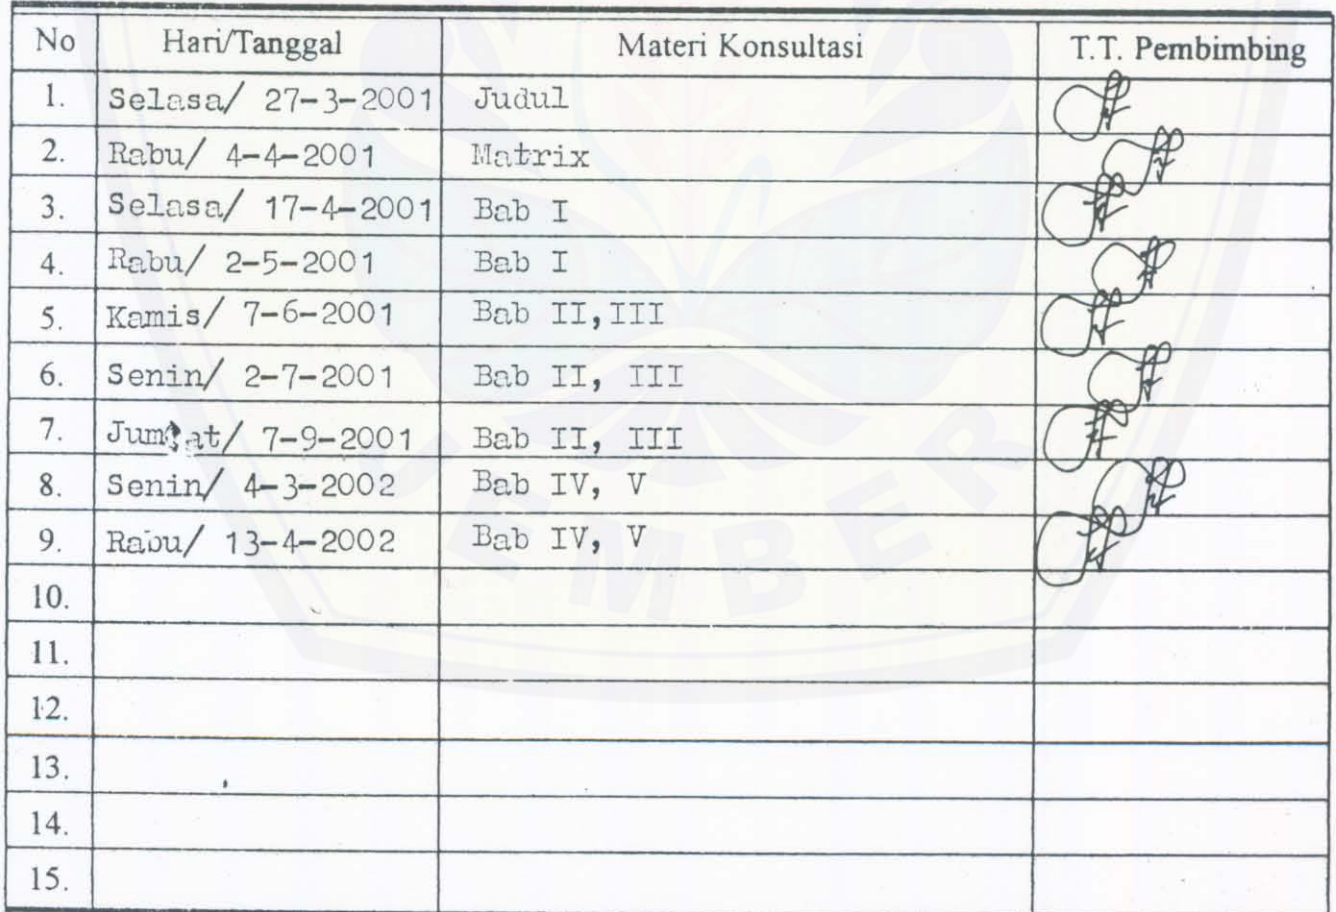 No Hari/Tanggal Materi Konsultasi T.T. Pembimbing
1. Selasa/ 27-3-2001 Judul
2. Rabu/ 4-4-2001 Matrix
3. Selasa/ 17-4-2001 Bab I
4. Rabu/ 2-5-2001 Bab I
5. Kamis/ 7-6-2001 Bab II,III
6. Senin/ 2-7-2001 Bab II, III
7. Jum'at/ 7-9-2001 Bab II, III
8. Senin/ 4-3-2002 Bab IV, V
9. Rabu/ 13-4-2002 Bab IV, V
10.
11.
12.
13.
14.
15.
JEMBER